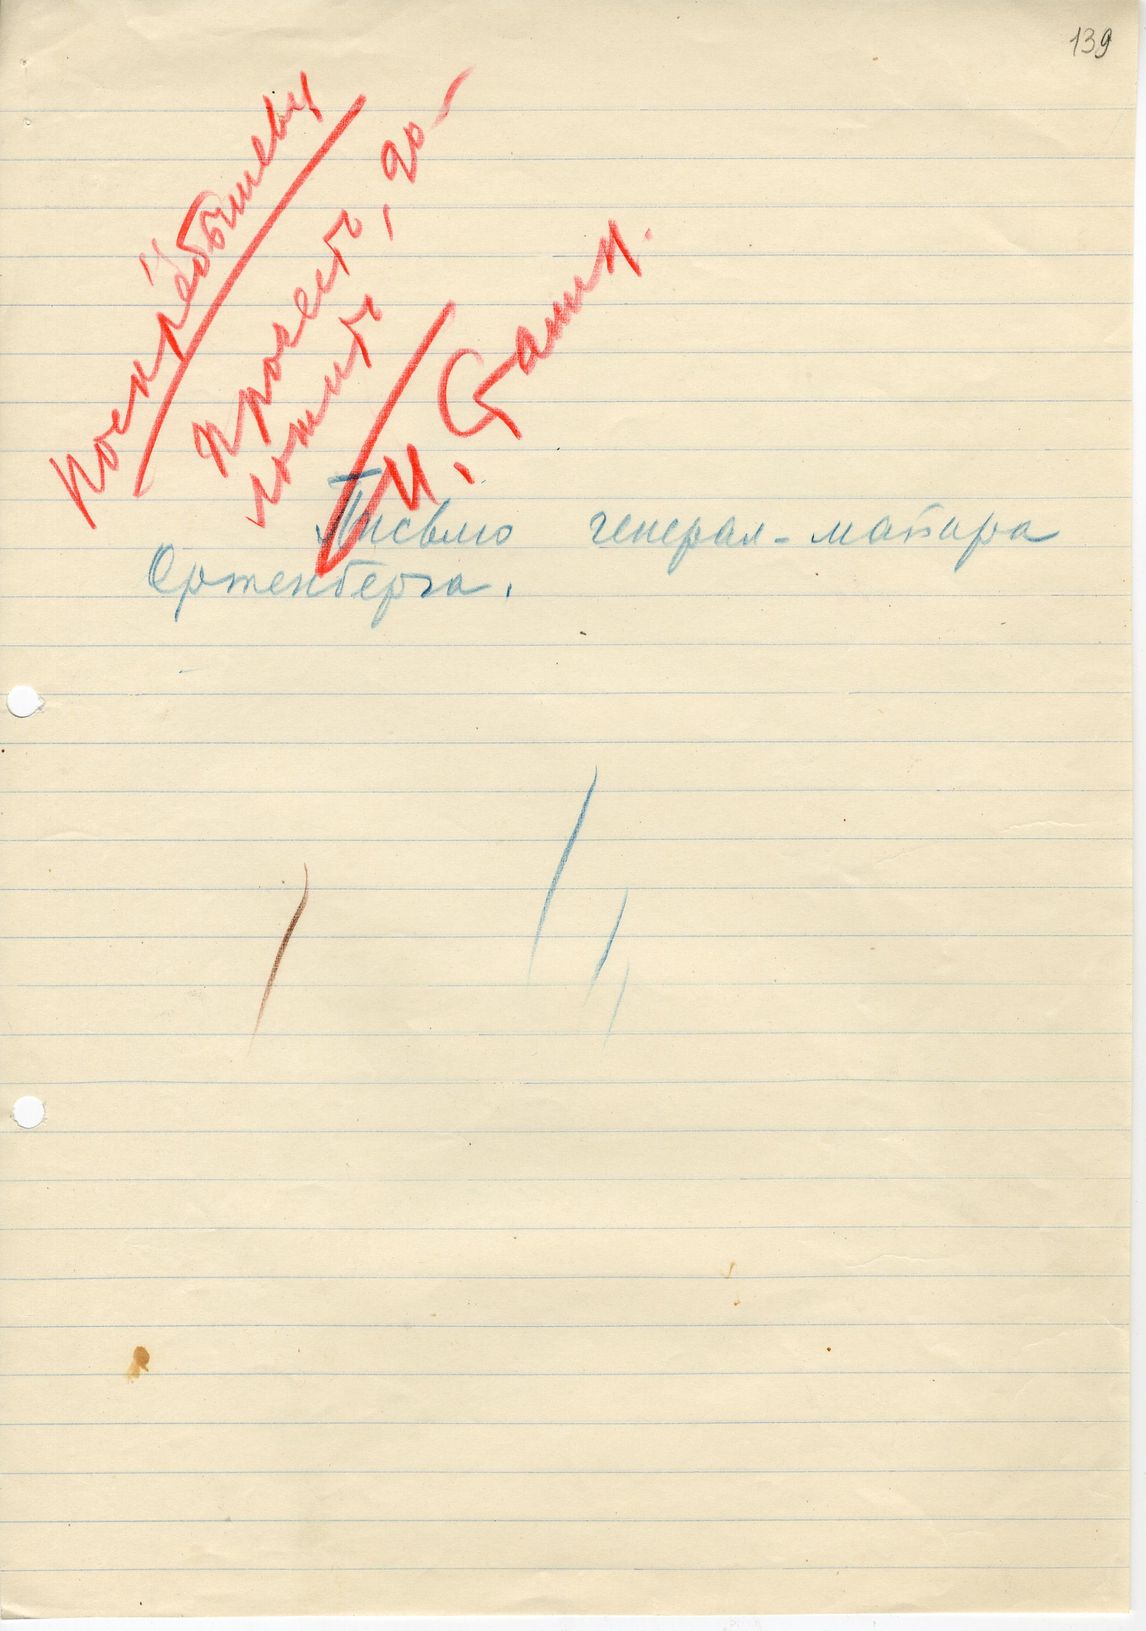 139
Поскрёбышеву
Прочесть, до-
ложить
И. Сталин.
Письмо генерал-майора
Ортенберга.